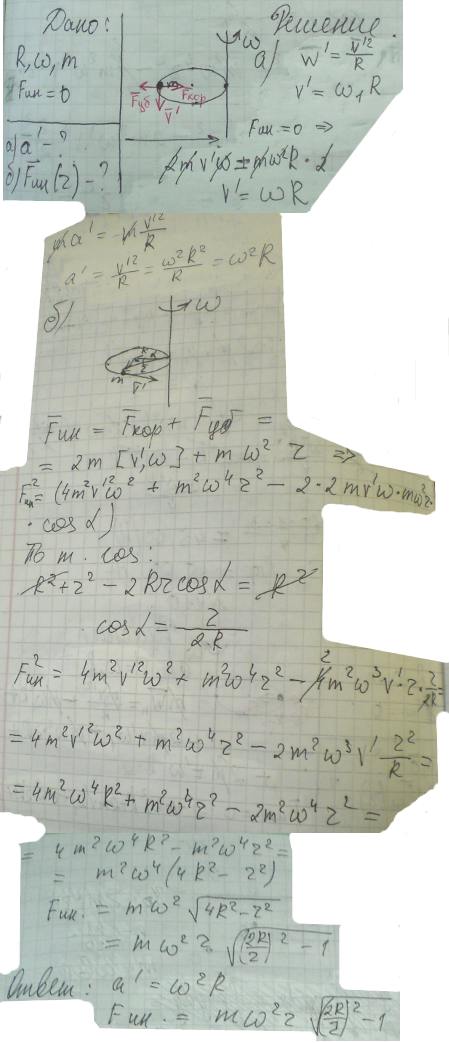 Дано:
R, ω, m
Fин = 0
а) a' - ?
б) Fин(r) - ?
ω
F̅уб
F̅кор
V̅'
Решение.
а) w̅' = v̅'²/R
v' = ω₁R
Fин = 0 ⇒
2mv'ω = mω²R · 2
v' = ωR
ma' = -m v'²/R
a' = v'²/R = ω²R²/R = ω²R
б)
ω
R α
r
m
V'
F̅ин = F̅кор + F̅уб =
= 2m [v'ω] + mω² r ⇒
F²ин = (4m²v'²ω² + m²ω⁴r² - 2·2mv'ω·mω²r·
· cos α)
По т. cos:
R² + r² - 2Rr cos α = R²
cos α = r/(2·R)
F²ин = 4m²v'²ω² + m²ω⁴r² - 4m²ω³v'·r·r/2R =
= 4m²v'²ω² + m²ω⁴r² - 2m²ω³v' r²/R =
= 4m²ω⁴R² + m²ω⁴r² - 2m²ω⁴r² =
= 4m²ω⁴R² - m²ω⁴r² =
= m²ω⁴(4R² - r²)
Fин. = mω² √(4R² - r²)
= mω²r √((2R/r)² - 1)
Ответ: a' = ω²R
Fин. = mω²r √((2R/r)² - 1)